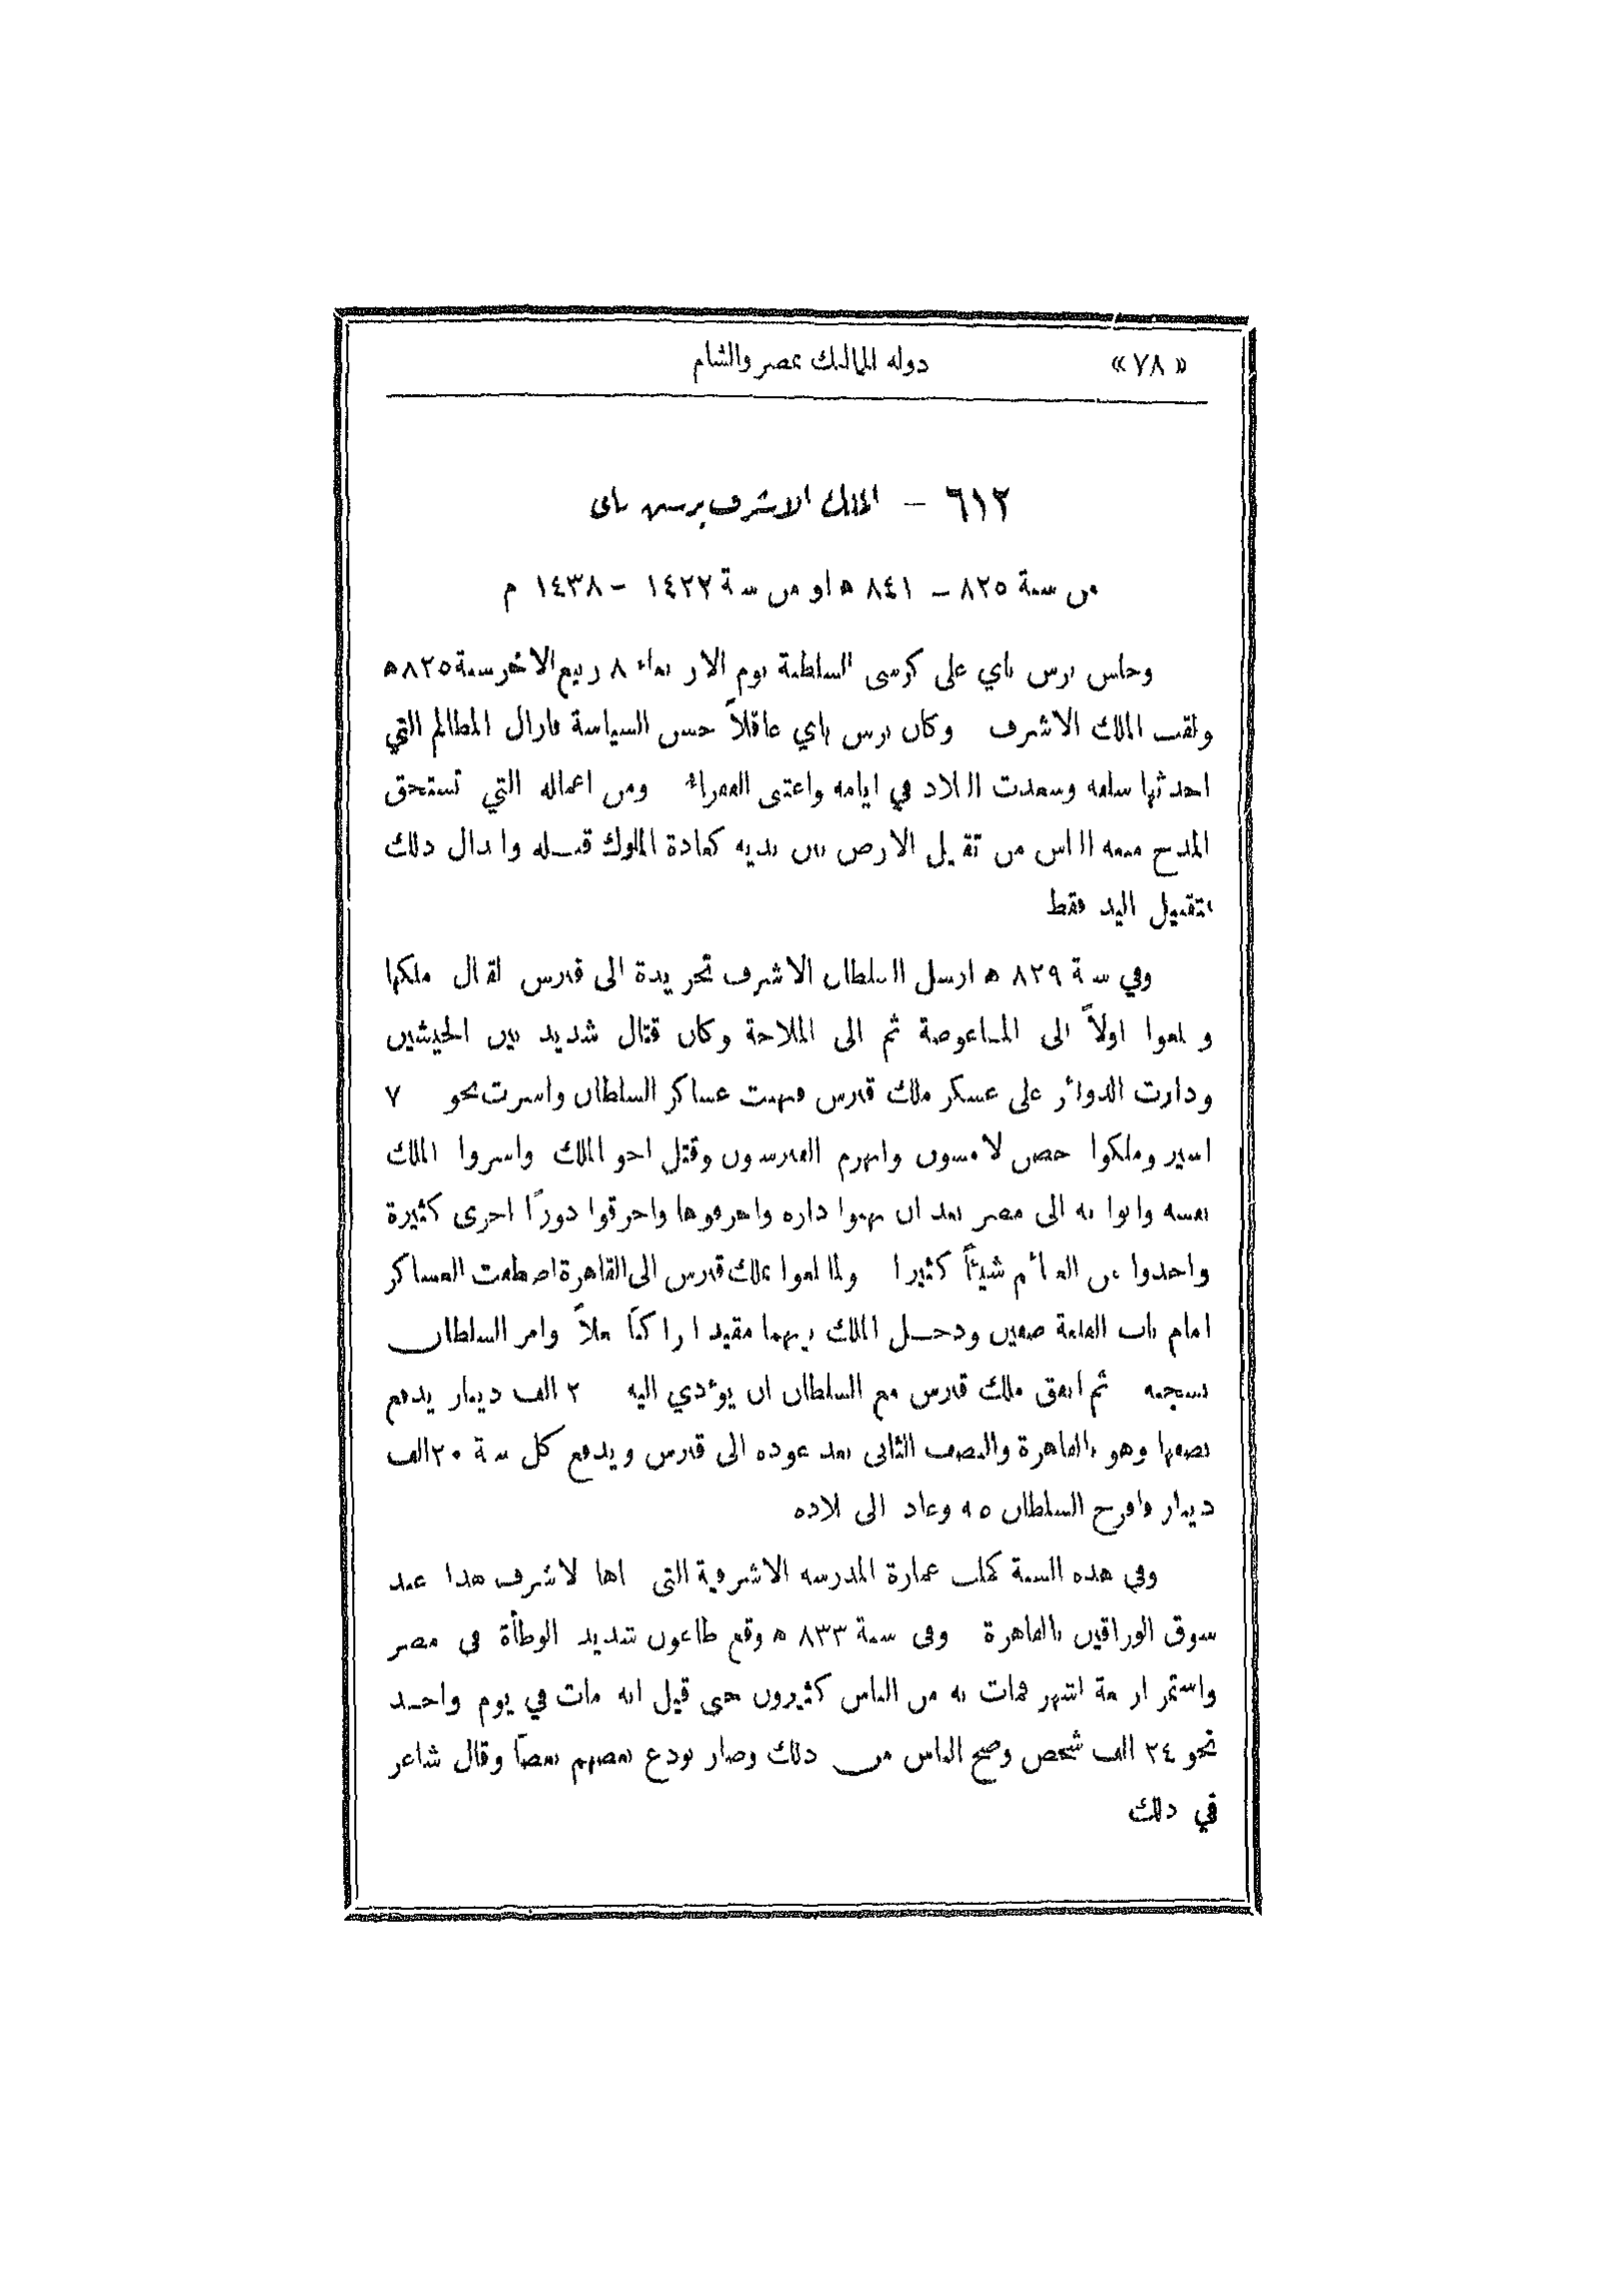 «٧٨» دولة المماليك بمصر والشام
٦١٢ – الملك الاشرف برس باى
من سنة ٨٢٥ – ٨٤١ ه او من سنة ١٤٢٢ – ١٤٣٨ م
وجلس برس باي على كرسى السلطنة يوم الاربعاء ٨ ربيع الاخر سنة ٨٢٥ ه
ولقب الملك الاشرف وكان برس باي عاقلاً حسن السياسة فازال المظالم التي
احدثها سلفه وسعدت البلاد في ايامه واغتنى الفقراء ومن اعماله التي تستحق
المدح منعه الناس من تقبيل الارض بين يديه كعادة الملوك قبله وابدال ذلك
بتقبيل اليد فقط
وفي سنة ٨٢٩ ه ارسل السلطان الاشرف تجريدة الى قبرس لقتال ملكها
وبلغوا اولاً الى الماغوصة ثم الى الملاحة وكان قتال شديد بين الجيشين
ودارت الدوائر على عسكر ملك قبرس فنهبت عساكر السلطان واسرت نحو ٧
اسير وملكوا حصن لامسون وانهزم القبرسيون وقتل اخو الملك واسروا الملك
نفسه واتوا به الى مصر بعد ان نهبوا داره واحرقوها واحرقوا دورًا اخرى كثيرة
واخذوا من الغنائم شيئاً كثيرا ولما بلغوا بملك قبرس الى القاهرة اصطفت العساكر
امام باب القلعة صفين ودخل الملك بينهما مقيدا راكبًا بغلاً وامر السلطان
بسجنه ثم اتفق ملك قبرس مع السلطان ان يؤدي اليه ٢ الف دينار يدفع
نصفها وهو بالقاهرة والنصف الثانى بعد عوده الى قبرس ويدفع كل سنة ٢٠ الف
دينار فافرج السلطان عنه وعاد الى بلاده
وفي هذه السنة كملت عمارة المدرسة الاشرفية التى بناها الاشرف هذا عند
سوق الوراقين بالقاهرة وفى سنة ٨٣٣ ه وقع طاعون شديد الوطأة فى مصر
واستمر اربعة اشهر فمات به من الناس كثيرون حتى قيل انه مات في يوم واحد
نحو ٢٤ الف شخص وضج الناس من ذلك وصار يودع بعضهم بعضًا وقال شاعر
في ذلك